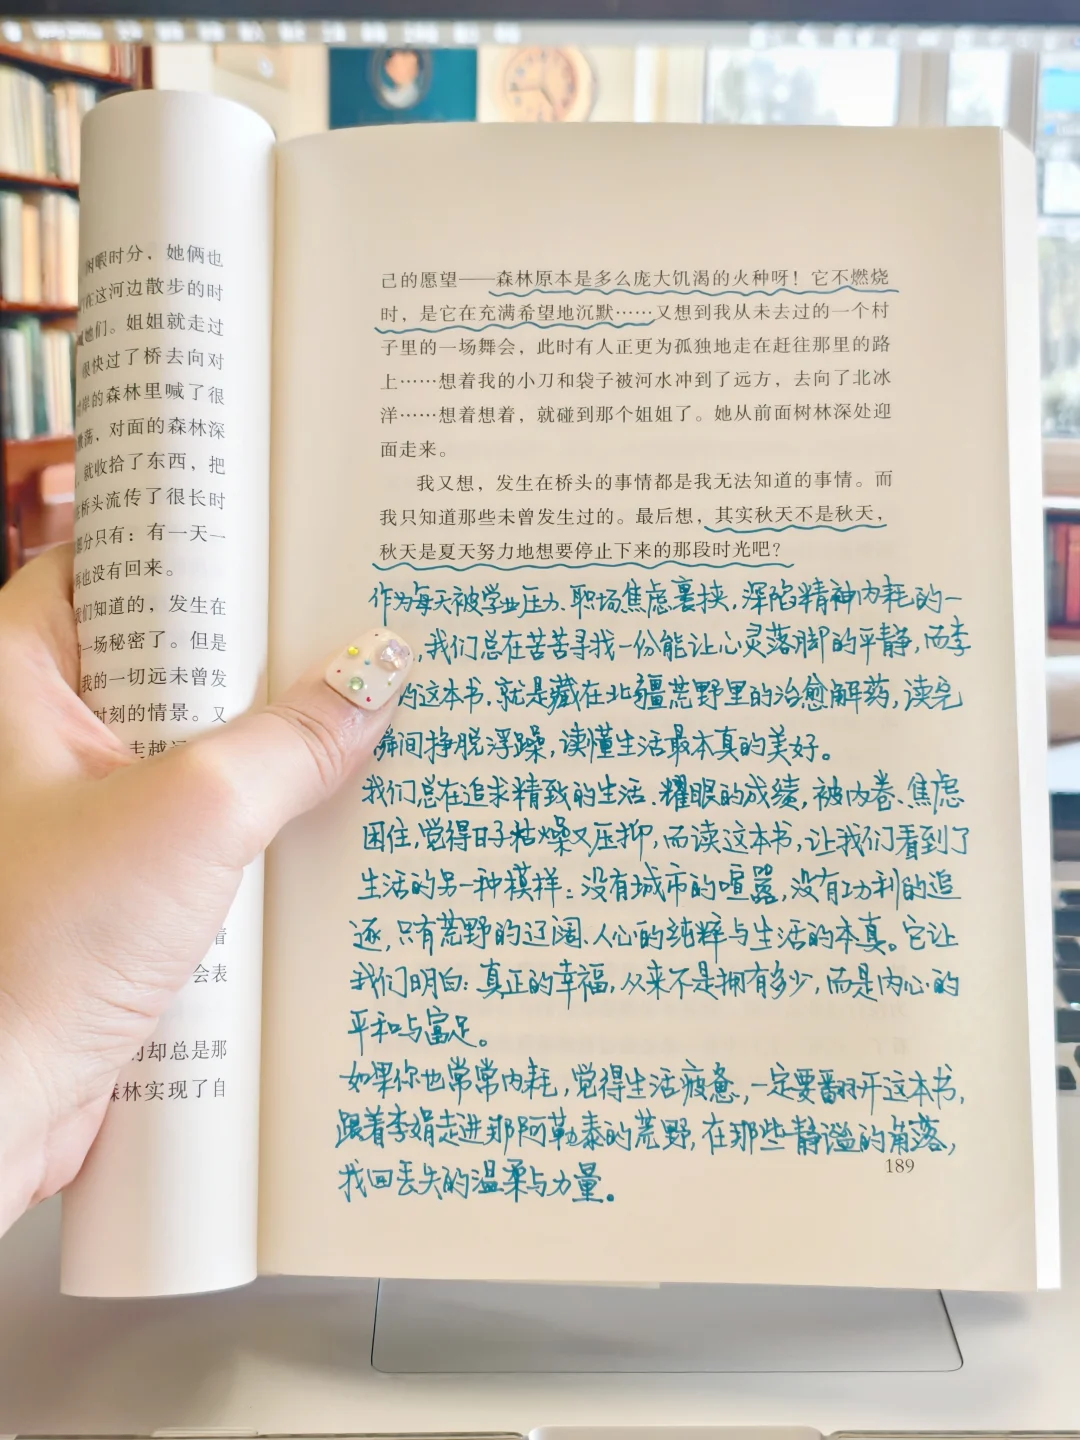 闲暇时分，她俩也
在这河边散步的时
她们。姐姐就走过
很快过了桥去向对
岸的森林里喊了很
荡，对面的森林深
，就收拾了东西，把
桥头流传了很长时
部分只有：有一天一
再也没有回来。
我们知道的，发生在
一场秘密了。但是
我的一切远未曾发
时刻的情景。又
会表
却总是那
森林实现了自
己的愿望——森林原本是多么庞大饥渴的火种呀！它不燃烧
时，是它在充满希望地沉默……又想到我从未去过的一个村
子里的一场舞会，此时有人正更为孤独地走在赶往那里的路
上……想着我的小刀和袋子被河水冲到了远方，去向了北冰
洋……想着想着，就碰到那个姐姐了。她从前面树林深处迎
面走来。
我又想，发生在桥头的事情都是我无法知道的事情。而
我只知道那些未曾发生过的。最后想，其实秋天不是秋天，
秋天是夏天努力地想要停止下来的那段时光吧？
作为每天被学业压力、职场焦虑裹挟，深陷精神内耗的一
，我们总在苦苦寻找一份能让心灵落脚的平静，而李
的这本书，就是藏在北疆荒野里的治愈解药，读完
瞬间挣脱浮躁，读懂生活最本真的美好。
我们总在追求精致的生活、耀眼的成绩，被内卷、焦虑
困住，觉得日子枯燥又压抑，而读这本书，让我们看到了
生活的另一种模样：没有城市的喧嚣，没有功利的追
逐，只有荒野的辽阔、人心的纯粹与生活的本真。它让
我们明白：真正的幸福，从来不是拥有多少，而是内心的
平和与富足。
如果你也常常内耗，觉得生活疲惫，一定要翻开这本书，
跟着李娟走进那阿勒泰的荒野，在那些静谧的角落，
找回丢失的温柔与力量。
189